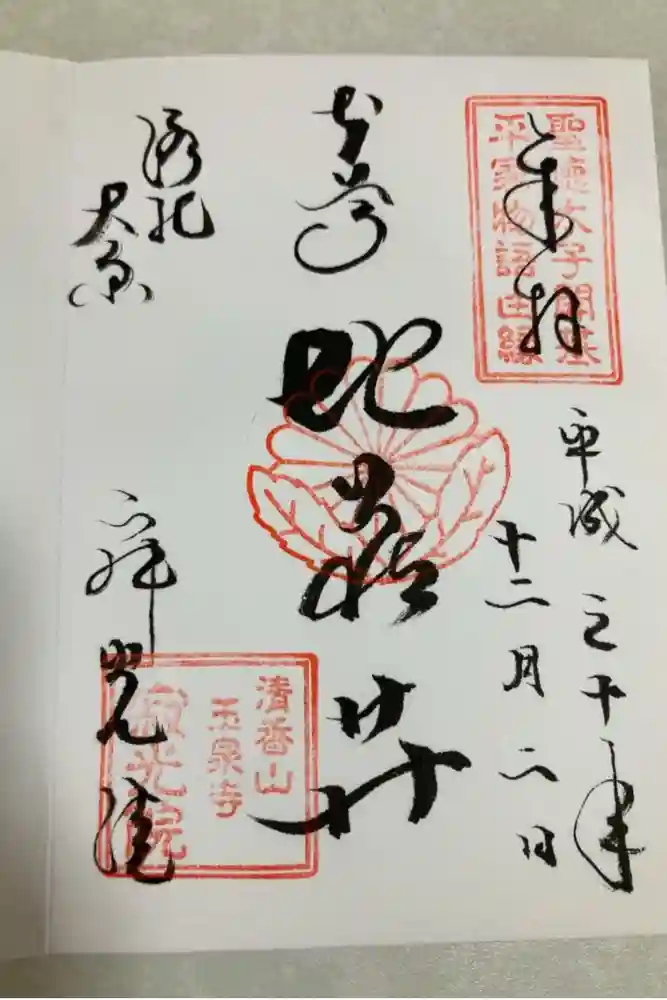 奉拝
聖徳太子開基
平家物語由縁
平成三十年
十二月二日
本尊
地蔵𦬇
洛北
大原
寂光院
清香山
玉泉寺
寂光院